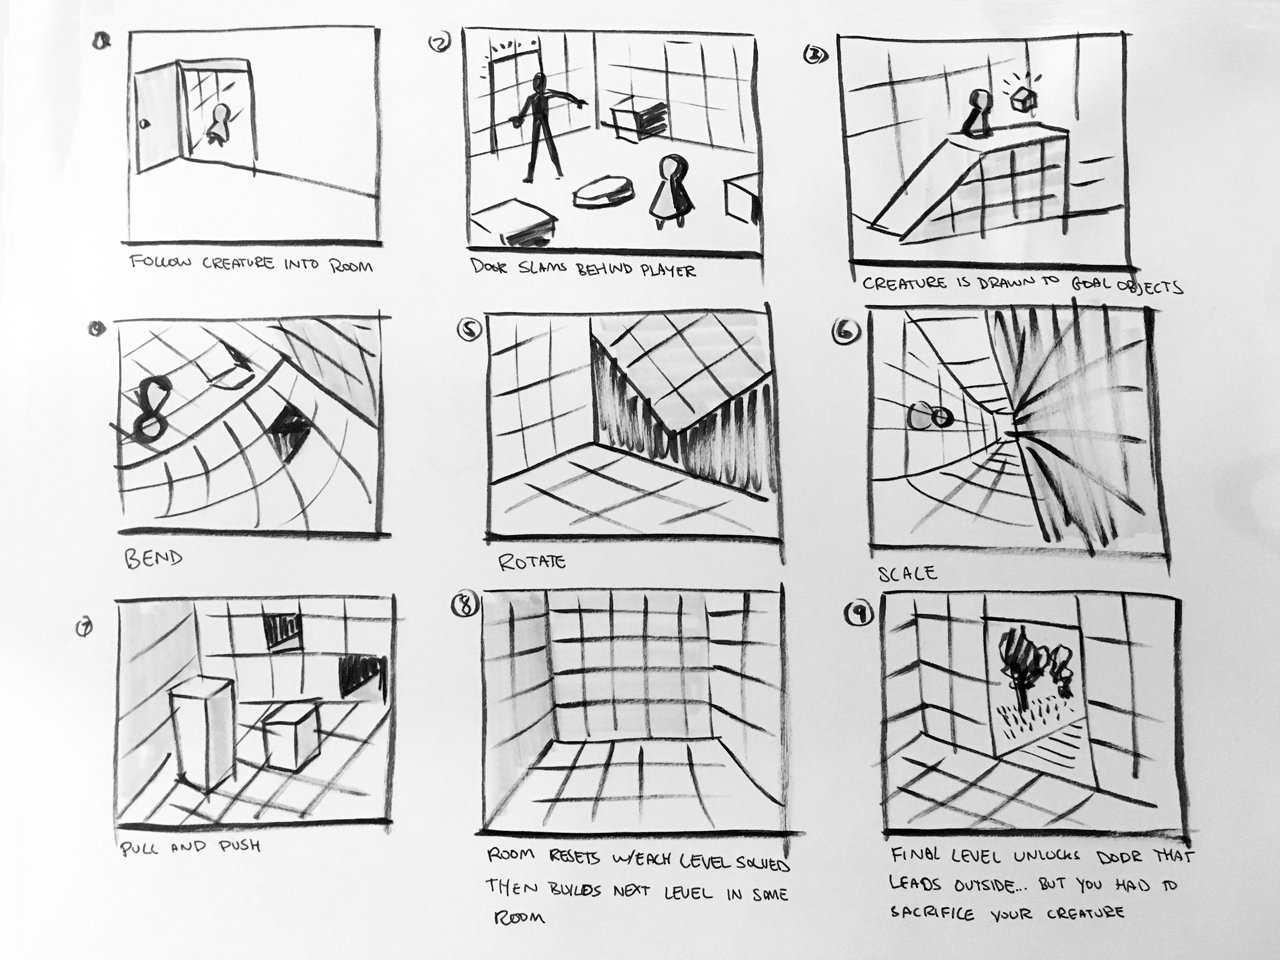 1
2
3
FOLLOW CREATURE INTO ROOM
DOOR SLAMS BEHIND PLAYER
CREATURE IS DRAWN TO GOAL OBJECTS
4
5
6
BEND
ROTATE
SCALE
7
8
9
PULL AND PUSH
ROOM RESETS W/EACH LEVEL SOLVED
THEN BUILDS NEXT LEVEL IN SAME
ROOM
FINAL LEVEL UNLOCKS DOOR THAT
LEADS OUTSIDE... BUT YOU HAD TO
SACRIFICE YOUR CREATURE